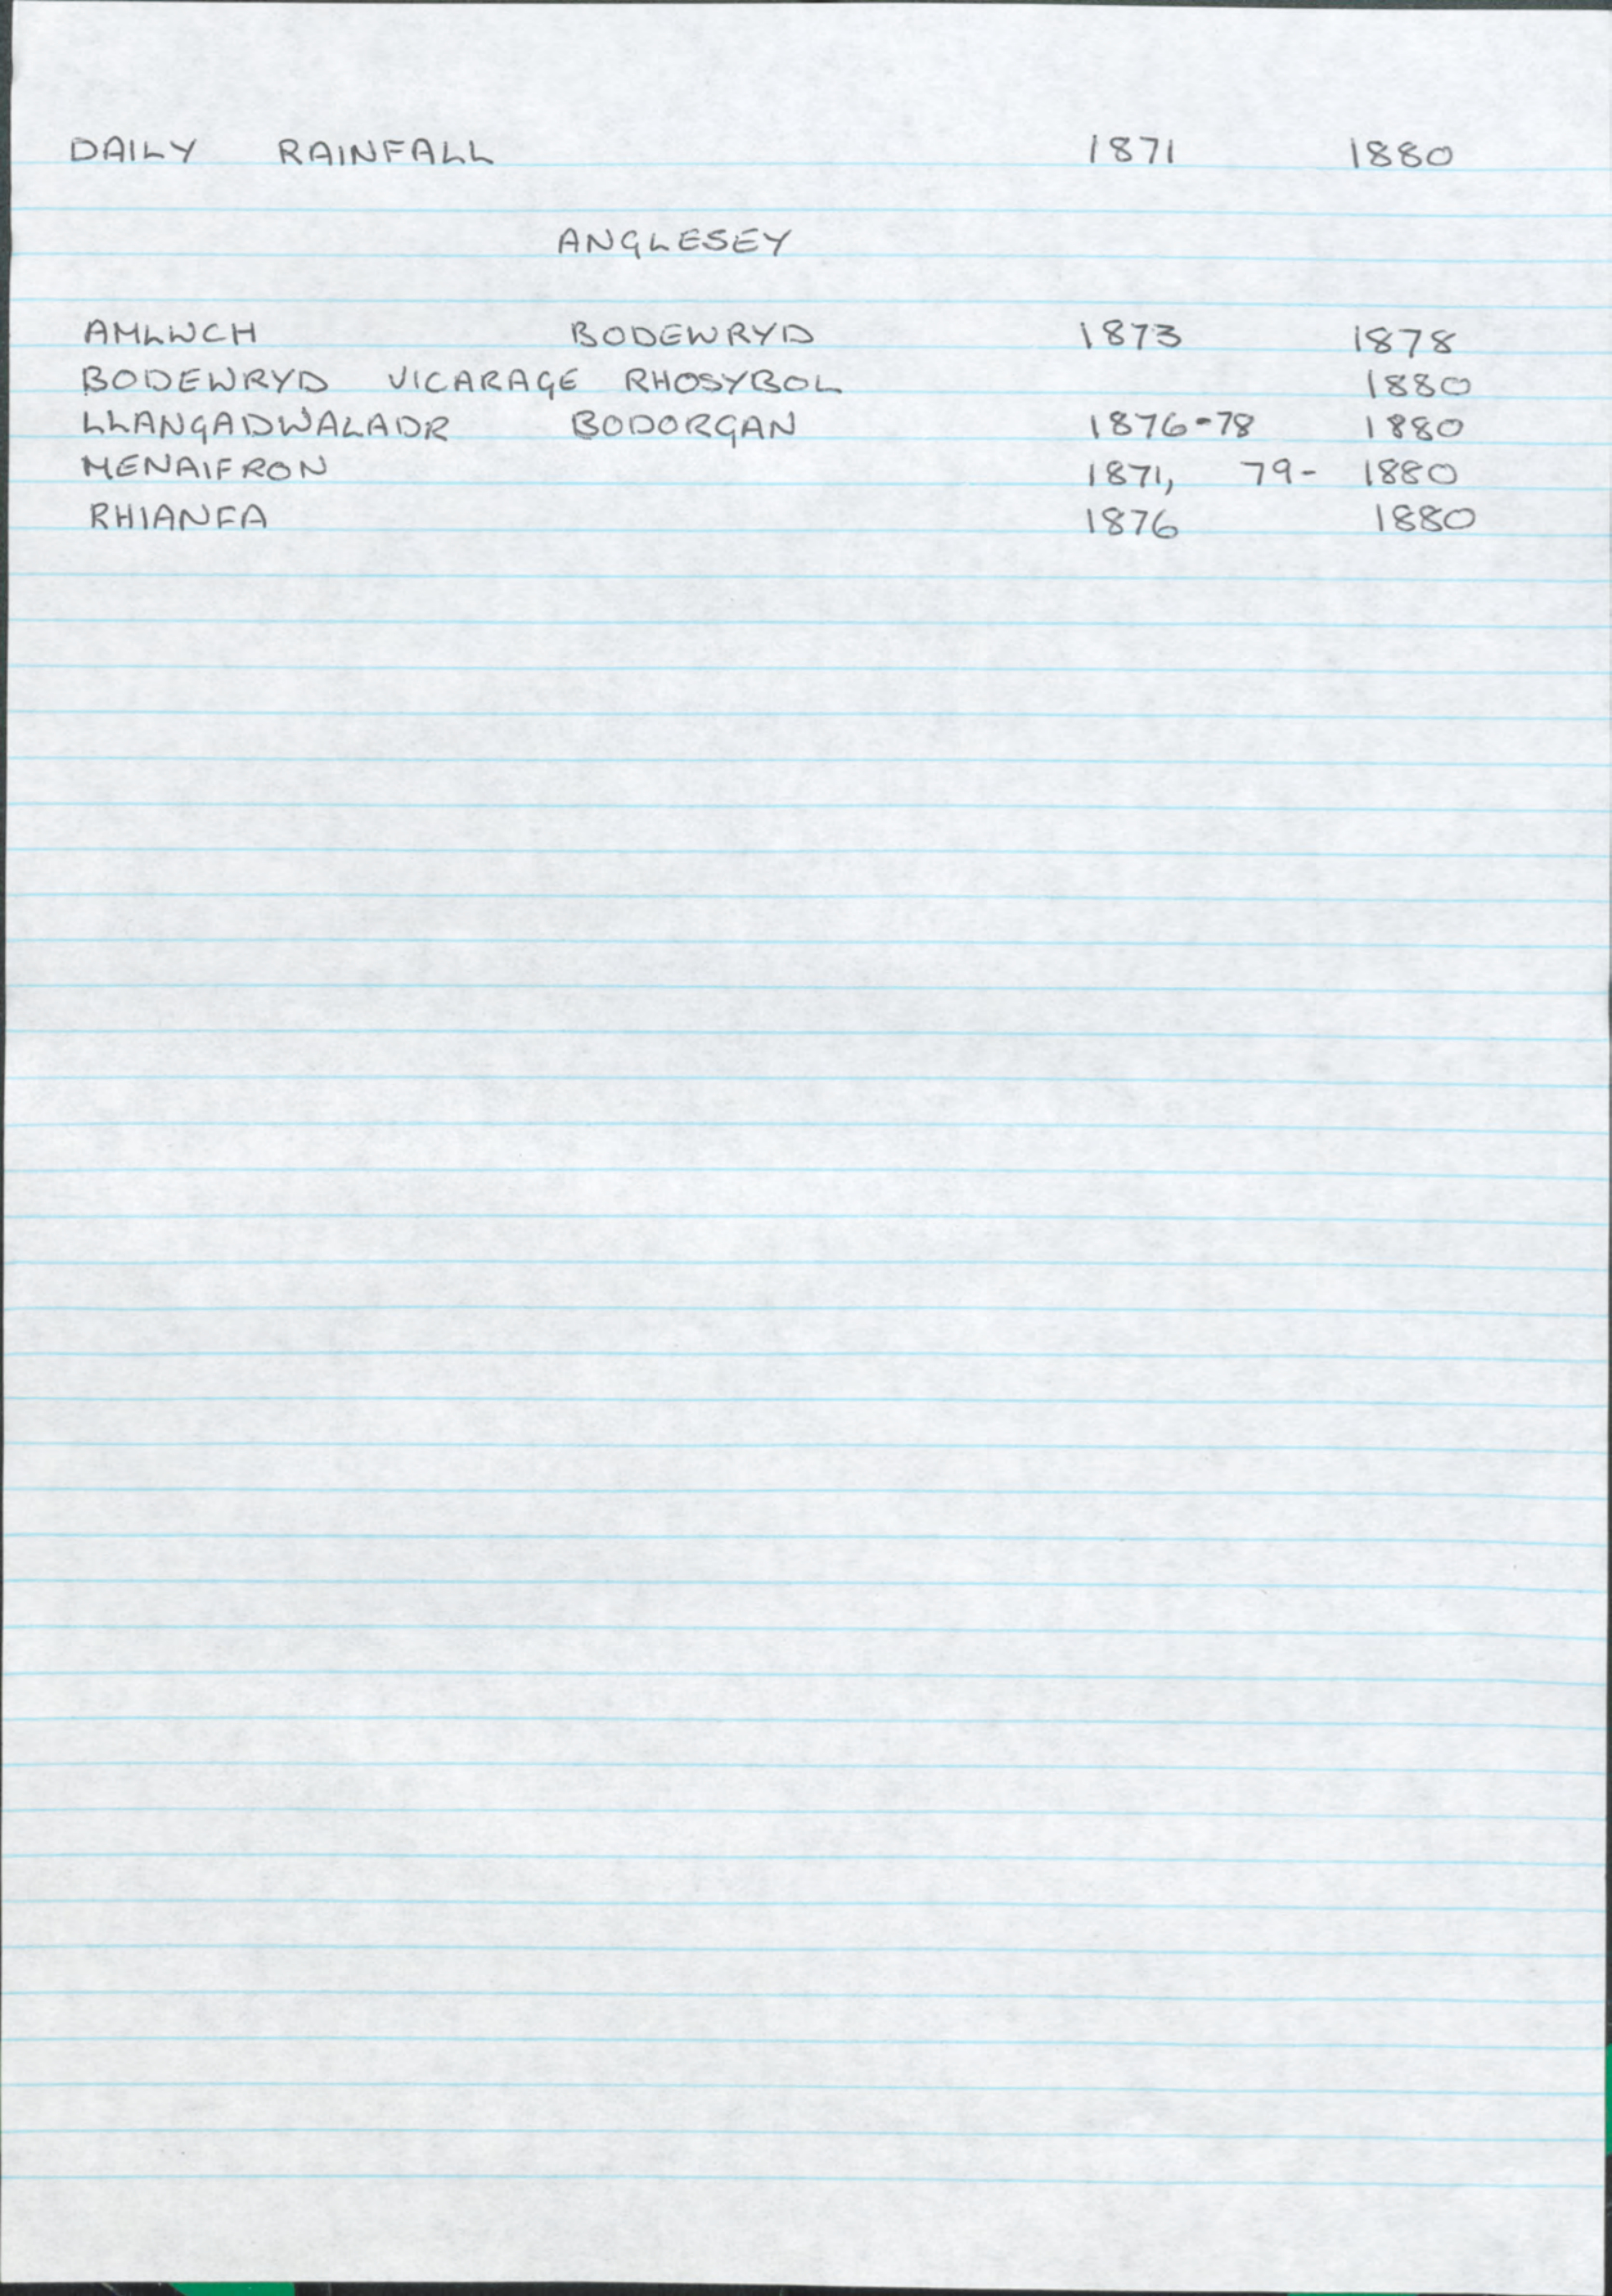 DAILY RAINFALL 1871 1880
ANGLESEY
AMLWCH BODEWRYD 1873 1878
BODEWRYD VICARAGE RHOSYBOL 1880
LLANGADWALADR BODORGAN 1876-78 1880
MENAIFRON 1871, 79- 1880
RHIANFA 1876 1880